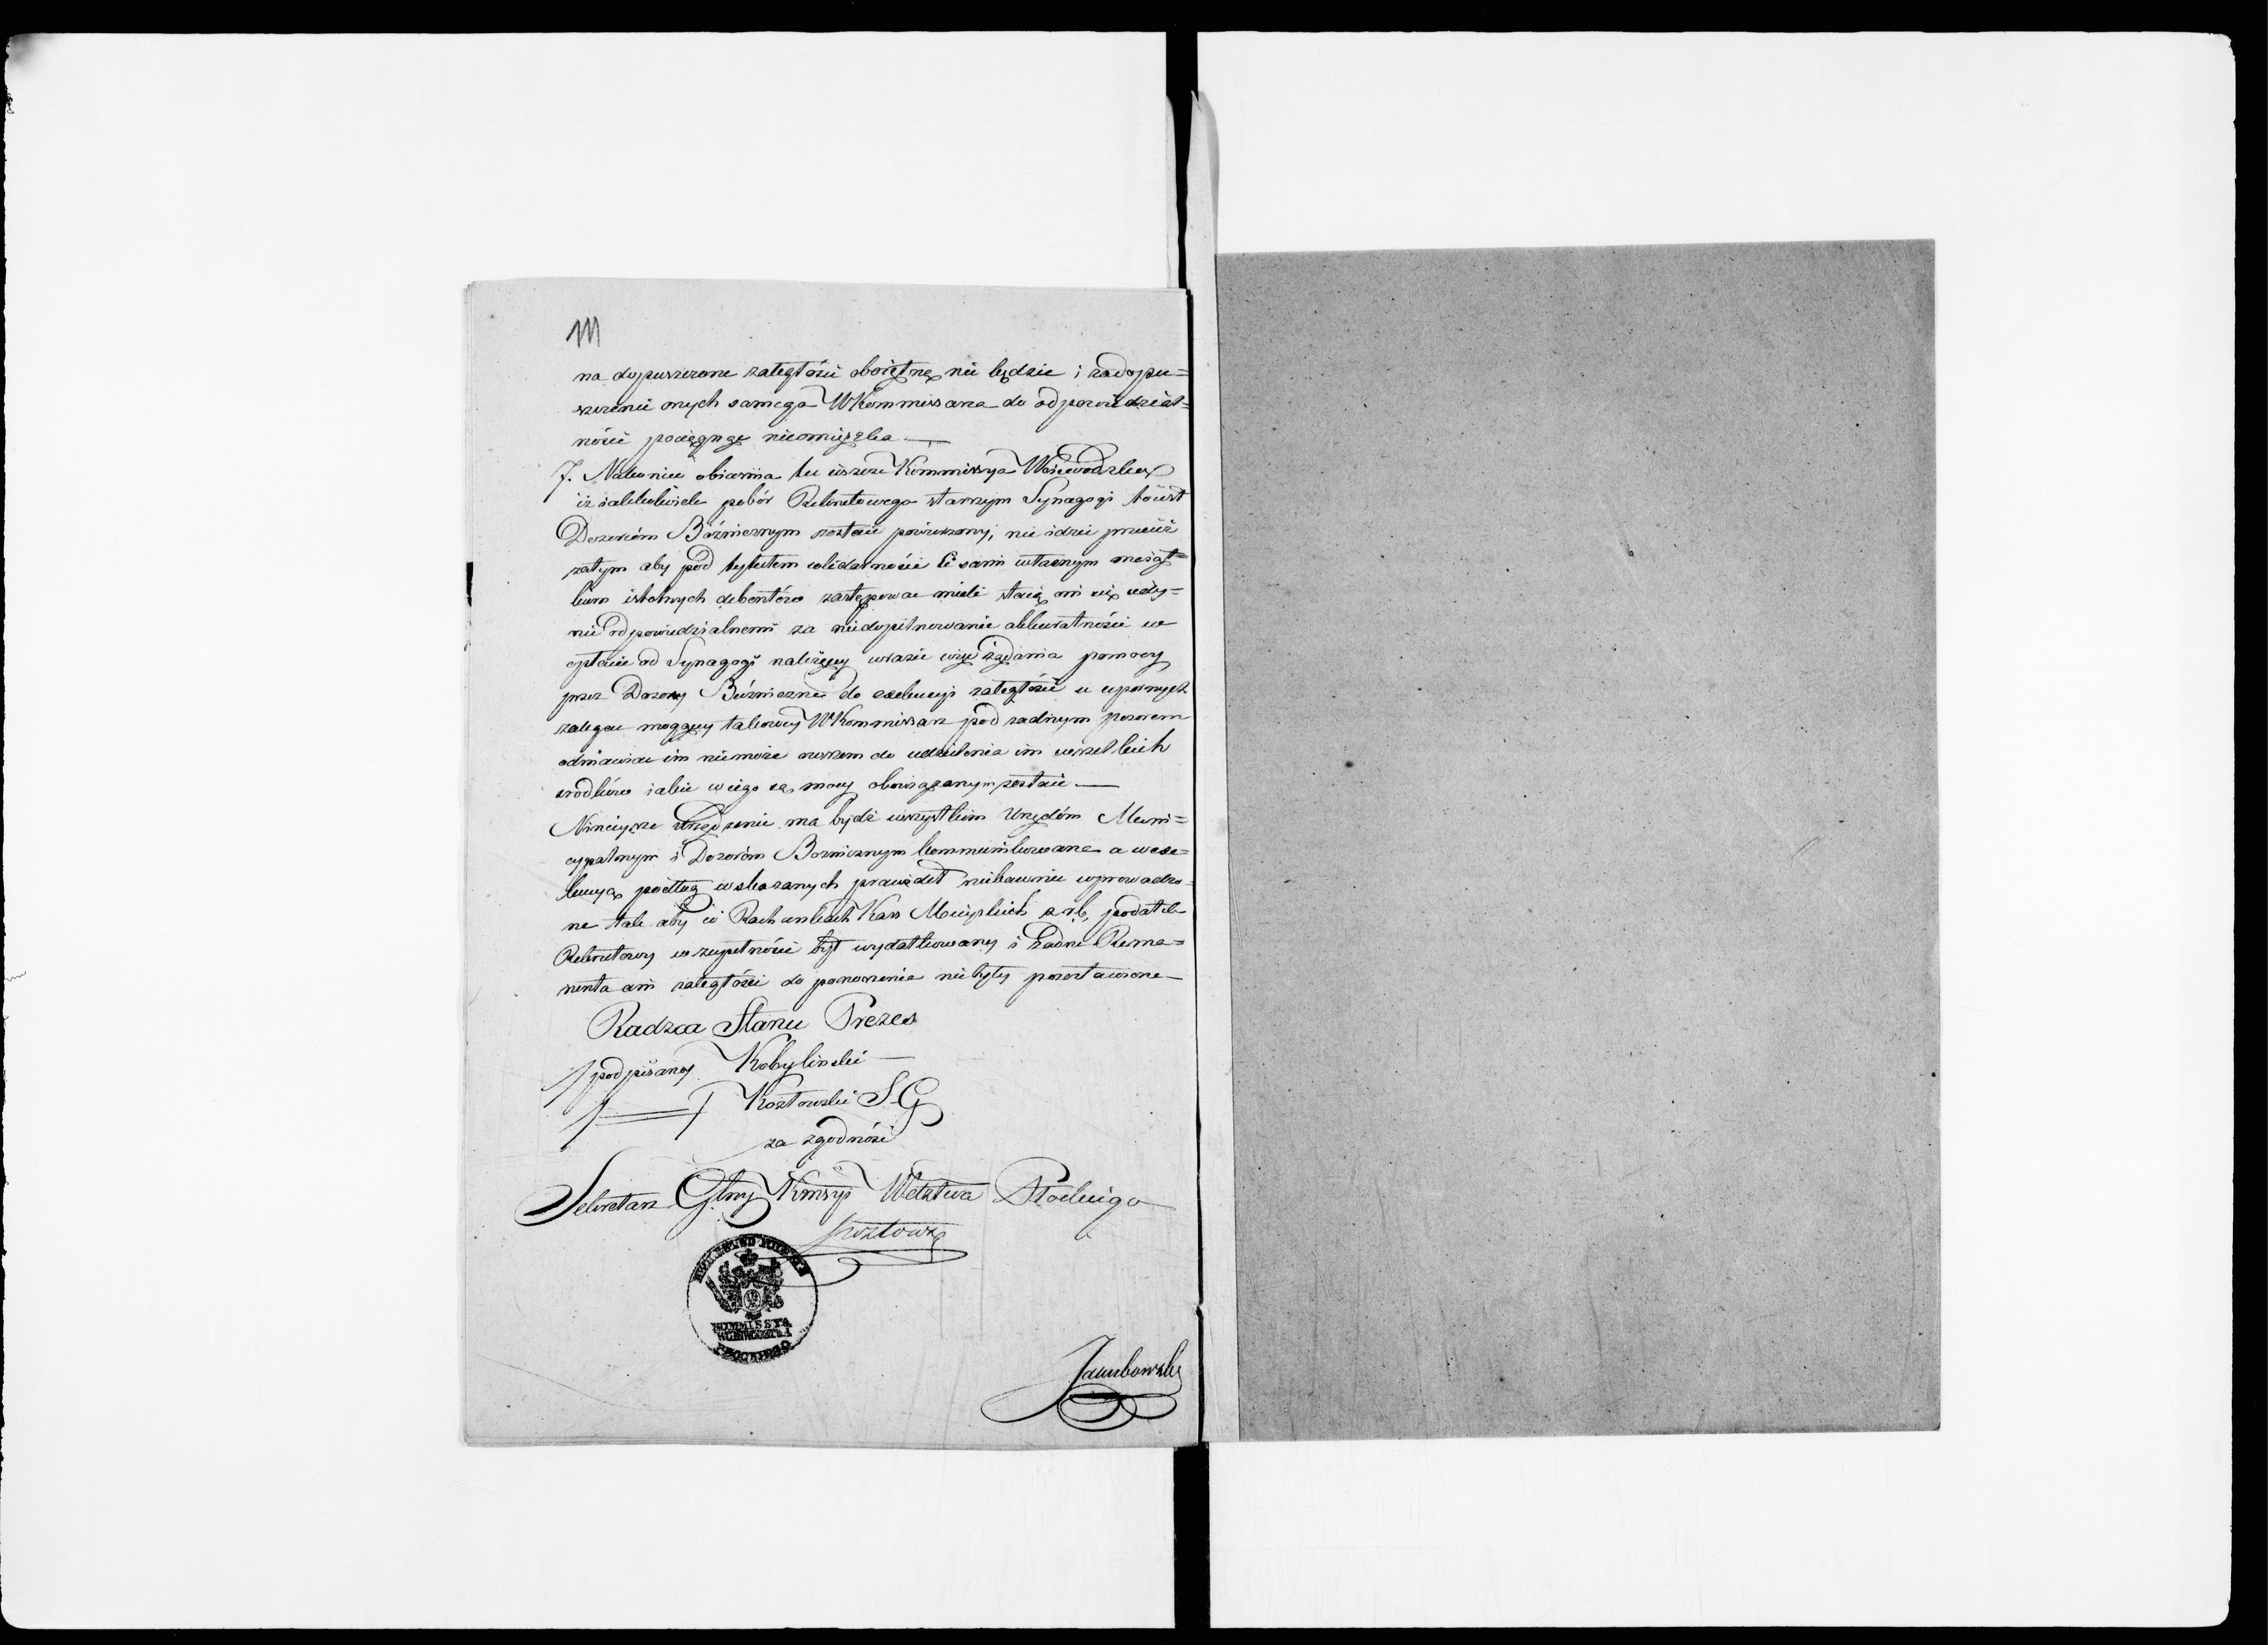 111
na dopuszczone zaległości obojętną nie będzie i za dopu=
szczenie onych samego WKommissarza do odpowiedzial=
ności pociągnąć nieomieszka —
7. Nakoniec obiaśnia tu ieszcze Kommissya Woiewodzka
iż iakkolwiek pobór Rekrutowego starszym Synagogi to iest
Dozorom Bóżnicznym zostaie powierzony, nie idzie przecież
zatym aby pod tytułem solidarności ci sami własnym maiąt=
kiem istotnych debentów zastępować mieli staią oni się iedy=
nie odpowiedzialnemi za niedopilnowanie akkuratności w
opłacie od Synagogi należącey w razie więc żądania pomocy
przez Dozory Bóżniczne do exekucyi zaległości u upornych
zalegać mogącey takowey WKommissarz pod żadnym pozorem
odmawiać im niemoże owszem do udzielenia im wszelkich
srodków iakie w iego są mocy obowiązanym zostaie —
Ninieysze Urządzenie ma bydź wszystkim Urzędóm Muni=
cypalnym i Dozoróm Bożnicznym kommunikowane a w exe=
kucyą podług wskazanych prawideł niebawnie wprowadzo=
ne tak aby w Rachunkach Kass Mieyskich z r.b. podatek
Rekrutowy w zupełności był wydatkowany i żadne Rema=
nenta ani zaległości do ponoszenia nie były pozostawione —
Radzca Stanu Prezes
/podpisany Kobyliński —
/ = / Kozłowski S G
za zgodność
Sekretarz Glny Kmssyi Wdztwa Płockiego
Kozłowski
KROLESTWO POLSKIE
KOMMISSYA
WOIEWODZTWA
PŁOCKIEGO
Jakubowski